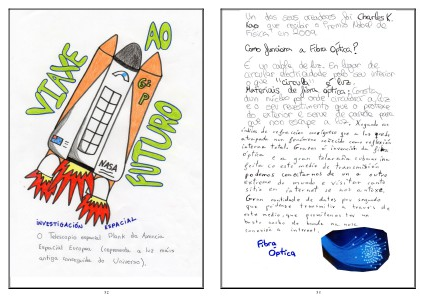 VIAXE
AO
FUTURO
NASA
INVESTIGACIÓN ESPACIAL
O Telescopio espacial Plank da Axencia
Espacial Europea (capturando a luz máis
antiga conseguida do Universo).
Un dos seus creadores foi Charles K.
Kao que recibiu o Premio Nobel de
Física en 2009.
Como funciona a Fibra Optica?
É un cable de luz. En lugar de
circular electricidade polo seu interior
o que "circula" é luz.
Materiais de fibra óptica: Consta
dun núcleo por onde circulará a luz
e o seu revestimento que o protexe
do exterior e serve de para
que non escape a luz. Xogando cos
índices de refracción conséguese que a luz quede
atrapada nun fenómeno coñecido como reflexión
interna total. Gracias á invención da fibra
óptica e a gran telaraña submarina
feita con este medio de transmisión
podemos conectarnos de un a outro
extremo do mundo e visitar canto
sitio en internet se nos antoxe.
Gran cantidade de datos por segundo
que pódense transmitir a través de
este medio, que permítenos ter un
bo ancho de banda na nosa
conexión a internet.
Fibra
Optica